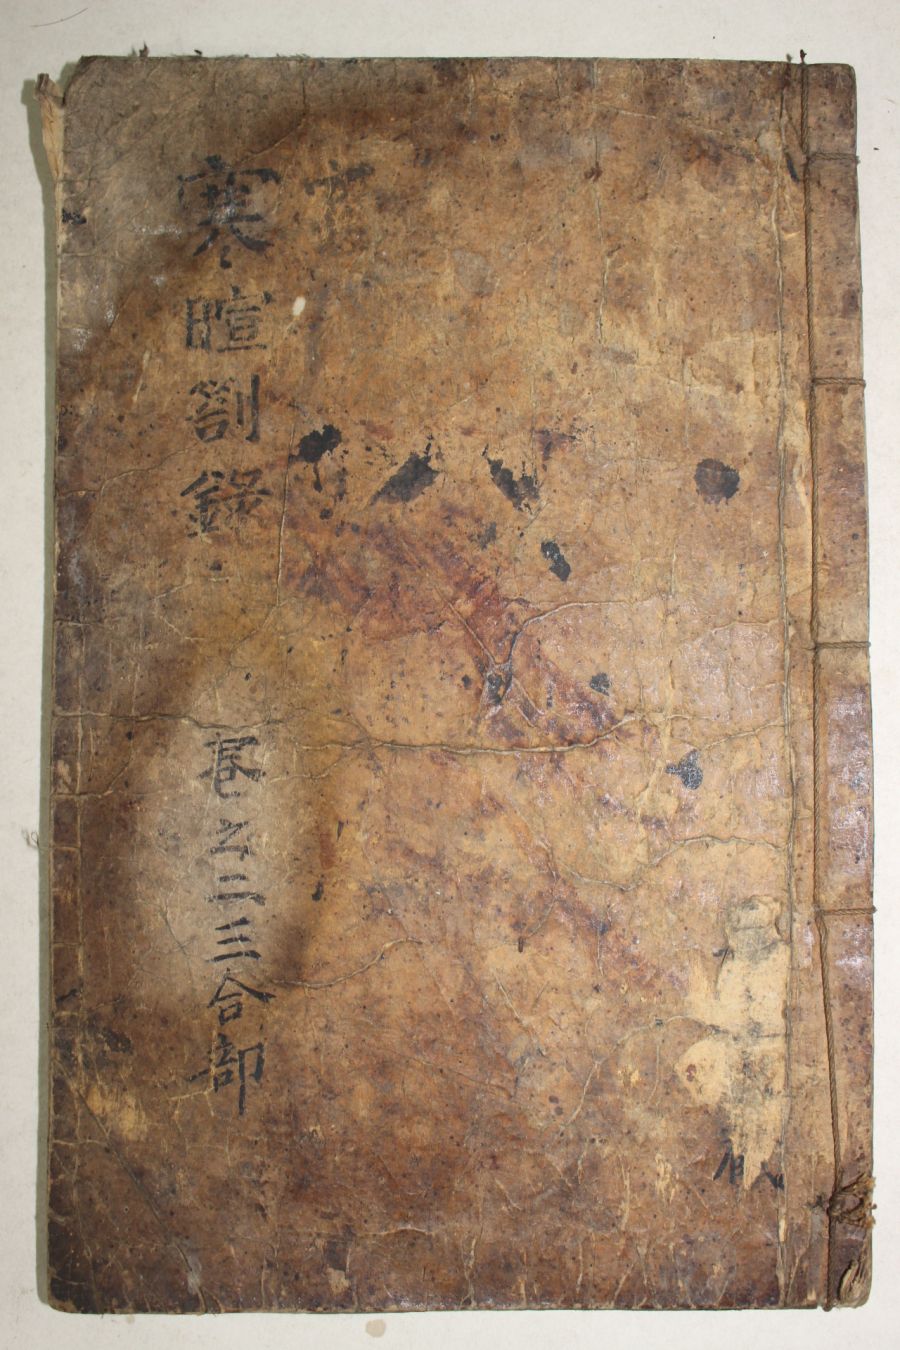 寒暄劄錄
卷之二三合部